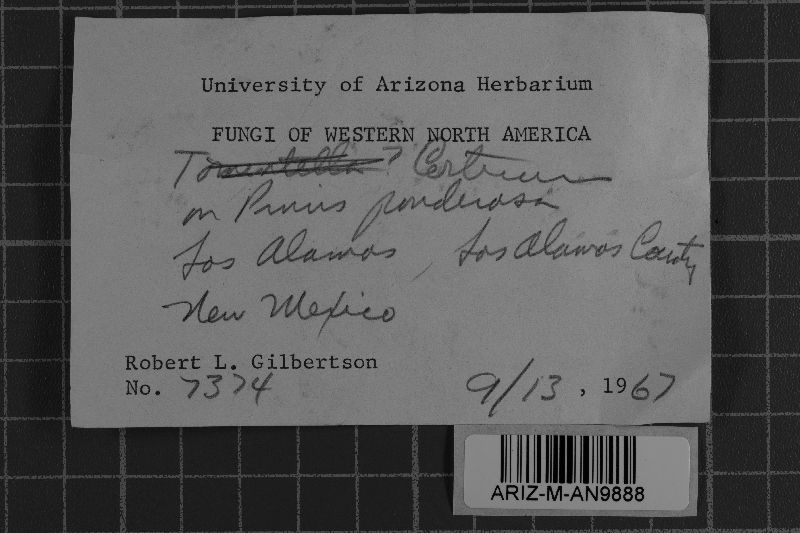 University of Arizona Herbarium
FUNGI OF WESTERN NORTH AMERICA
Tomentella ?
on Pinus ponderosa
Los Alamos, Los Alamos County
New Mexico
Robert L. Gilbertson
No. 7374 9/13, 1967
ARIZ-M-AN9888